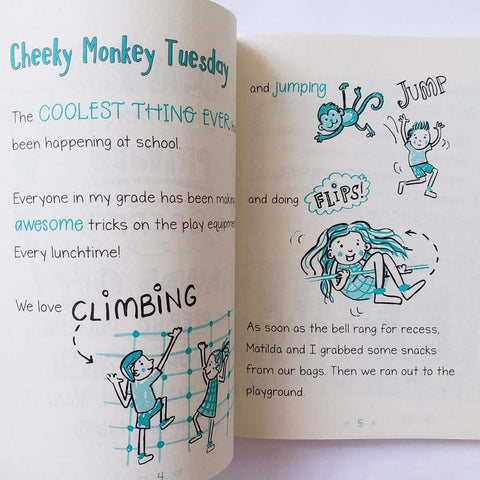 Cheeky Monkey Tuesday
The COOLEST THING EVER
been happening at school.
Everyone in my grade has been
awesome tricks on the play
Every lunchtime!
We love CLIMBING
4
and jumping
JUMP
and doing FLIPS!
As soon as the bell rang for recess,
Matilda and I grabbed some snacks
from our bags. Then we ran out to the
playground.
5